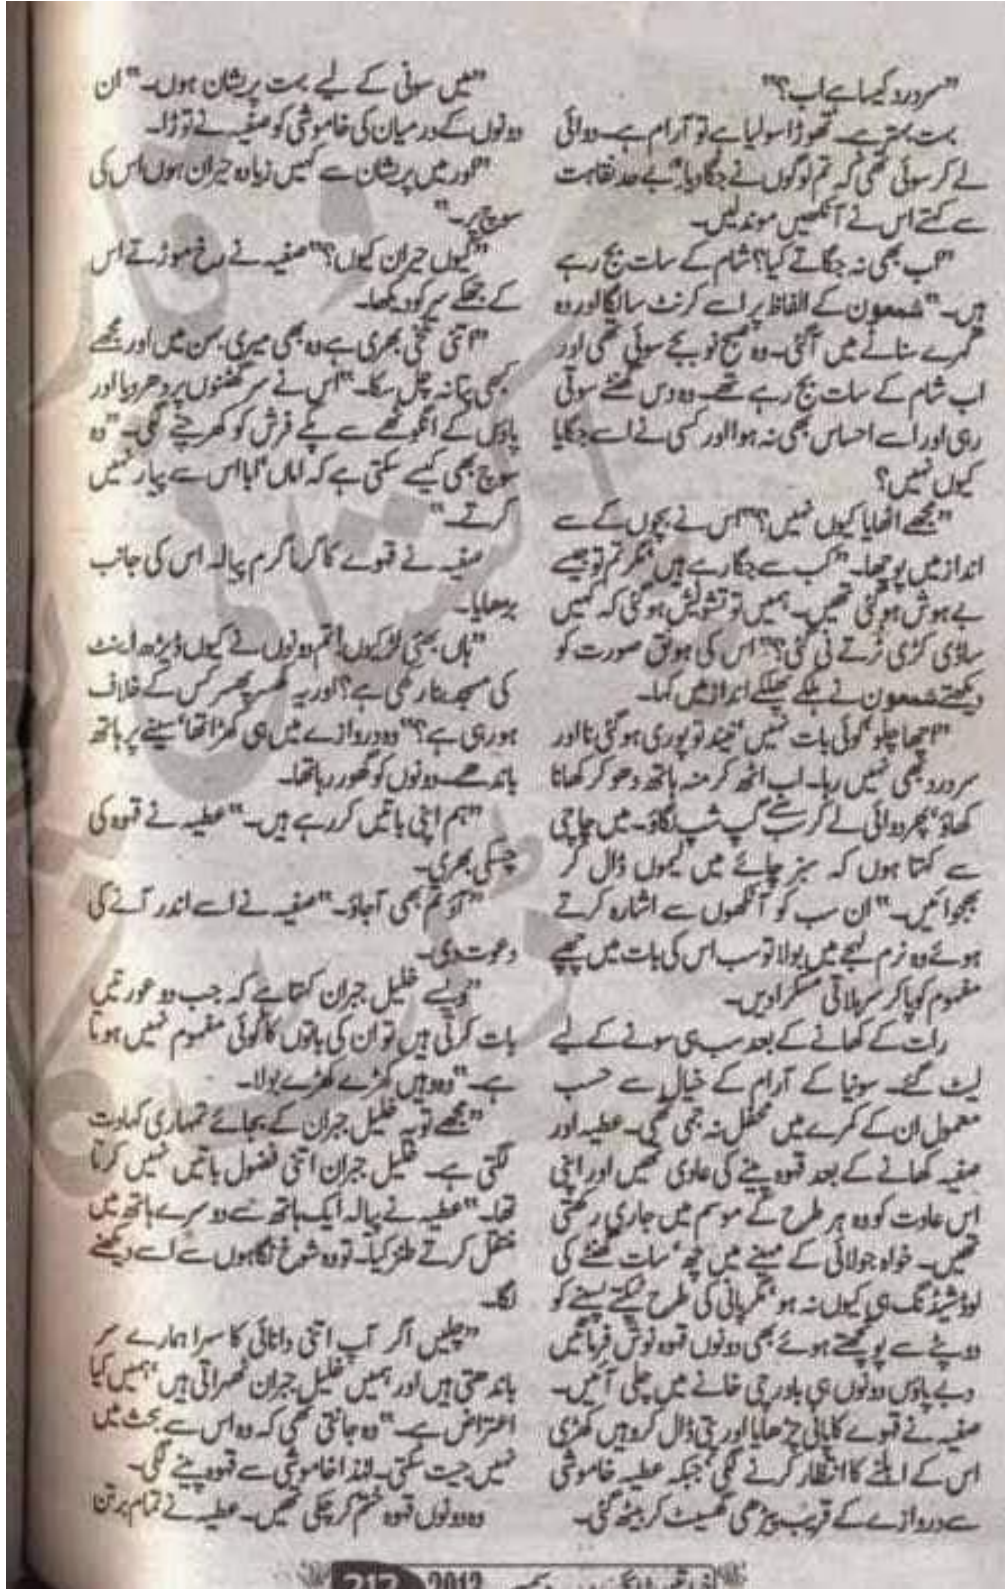 "سر درد کیسا ہے اب؟"
بہت بہتر ہے۔ تھوڑا سو لیا ہے تو آرام ہے۔ دوائی
لے کر سوئی تھی کہ تم لوگوں نے جگا دیا۔" بے حد نقاہت
سے کہتے اس نے آنکھیں موند لیں۔
"اب بھی نہ جگاتے کیا؟ شام کے سات بج رہے
ہیں۔" شمعون کے الفاظ پر اسے کرنٹ سا لگا اور وہ
گہرے سناٹے میں آگئی۔ وہ صبح نو بجے سوئی تھی اور
اب شام کے سات بج رہے تھے۔ وہ دس گھنٹے سوتی
رہی اور اسے احساس بھی نہ ہوا اور کسی نے اسے جگایا
کیوں نہیں؟
"مجھے اٹھایا کیوں نہیں؟" اس نے بچوں کے سے
انداز میں پوچھا۔ "کب سے جگا رہے ہیں، مگر تم تو جیسے
بے ہوش ہو گئی تھیں۔ ہمیں تو تشویش ہو گئی کہ کہیں
ساڈی کڑی ٹرتے نی گئی؟" اس کی ہونق صورت کو
دیکھتے شمعون نے ہلکے پھلکے انداز میں کہا۔
"اچھا چلو، کوئی بات نہیں، نیند تو پوری ہو گئی نا اور
سر درد بھی نہیں رہا۔ اب اٹھ کر منہ ہاتھ دھو کر کھانا
کھاؤ، پھر دوائی لے کر سب گپ شپ لگاؤ۔ میں چاچی
سے کہتا ہوں کہ سبز چائے میں لیموں ڈال کر
بھجوائیں۔" ان سب کو آنکھوں سے اشارہ کرتے
ہوئے وہ نرم لہجے میں بولا تو سب اس کی بات میں چھپے
مفہوم کو پا کر سر ہلاتی مسکرا دیں۔
رات کے کھانے کے بعد سب ہی سونے کے لیے
لیٹ گئے۔ سونیا کے آرام کے خیال سے حسب
معمول ان کے کمرے میں محفل نہ جمی تھی۔ عطیہ اور
صفیہ کھانے کے بعد قہوہ پینے کی عادی تھیں اور اپنی
اس عادت کو وہ ہر طرح کے موسم میں جاری رکھتی
تھیں۔ خواہ جولائی کے مہینے میں چھ، سات گھنٹے کی
لوڈ شیڈنگ ہی کیوں نہ ہو، مگر پانی کی طرح ٹپکتے پسینے کو
دوپٹے سے پونچھتے ہوئے بھی دونوں قہوہ نوش فرماتیں
دبے پاؤں دونوں ہی باورچی خانے میں چلی آئیں۔
صفیہ نے قہوے کا پانی چڑھایا اور پتی ڈال کر وہیں کھڑی
اس کے ابلنے کا انتظار کرنے لگی، جبکہ عطیہ خاموشی
سے دروازے کے قریب پیڑھی گھسیٹ کر بیٹھ گئی۔
"میں سونی کے لیے بہت پریشان ہوں۔" ان
دونوں کے درمیان کی خاموشی کو صفیہ نے توڑا۔
"اور میں پریشان سے کہیں زیادہ حیران ہوں اس کی
سوچ پر۔"
"کیوں حیران کیوں؟" صفیہ نے رخ موڑتے اس
کے جھکے سر کو دیکھا۔
"اتنی تلخی بھری ہے وہ بھی میری بہن میں اور مجھے
کبھی پتا نہ چل سکا۔" اس نے سر گھٹنوں پر دھر دیا اور
پاؤں کے انگوٹھے سے پکے فرش کو کھرچنے لگی۔ "وہ
سوچ بھی کیسے سکتی ہے کہ اماں، ابا اس سے پیار نہیں
کرتے۔"
صفیہ نے قہوے کا گرما گرم پیالہ اس کی جانب
بڑھایا۔
"ہاں بھئی لڑکیوں! تم دونوں نے کیوں ڈیڑھ اینٹ
کی مسجد بنا رکھی ہے؟ اور یہ کھسر پھسر کس کے خلاف
ہو رہی ہے؟" وہ دروازے میں ہی کھڑا تھا، سینے پر ہاتھ
باندھے دونوں کو گھور رہا تھا۔
"ہم اپنی باتیں کر رہے ہیں۔" عطیہ نے قہوہ کی
چسکی بھری۔
"آؤ تم بھی آجاؤ۔" صفیہ نے اسے اندر آنے کی
دعوت دی۔
"ویسے خلیل جبران کہتا ہے کہ جب دو عورتیں
بات کرتی ہیں تو ان کی باتوں کا کوئی مفہوم نہیں ہوتا
ہے۔" وہ وہیں کھڑے کھڑے بولا۔
"مجھے تو یہ خلیل جبران کے بجائے تمہاری کہاوت
لگتی ہے۔ خلیل جبران اتنی فضول باتیں نہیں کرتا
تھا۔" عطیہ نے پیالہ ایک ہاتھ سے دوسرے ہاتھ میں
منتقل کرتے طنز کیا۔ تو وہ شوخ نگاہوں سے اسے دیکھنے
لگا۔
"چلیں اگر آپ اتنی دانائی کا سہرا ہمارے سر
باندھتی ہیں اور ہمیں خلیل جبران ٹھہراتی ہیں، ہمیں کیا
اعتراض ہے۔" وہ جانتی تھی کہ وہ اس سے بحث میں
نہیں جیت سکتی۔ لہٰذا خاموشی سے قہوہ پینے لگی۔
وہ دونوں قہوہ ختم کر چکی تھیں۔ عطیہ نے تمام برتن
217 2012